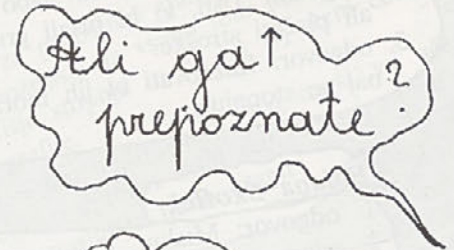 Ali ga↑
prepoznate ?